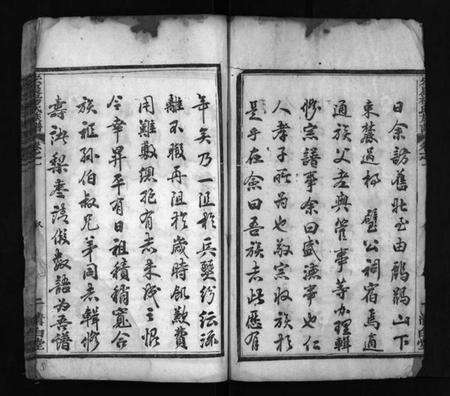 日余訪舊北至由鷓鴣山下
東麓過 璧公祠宿焉適
通族父老與管事等办理輯
修宗譜事余曰盛渼事也仁
人孝子所為也敬宗收族於
是乎在僉曰吾族志此歷有
年矣乃一阻於兵燹紛紜流
離不暇再阻於歲時飢歉費
用難敷懷抱有志未逮之恨
今幸昇平有日祖積稍寬合
族祖孫伯叔兄弟同志輯修
壽諸梨棗請俊數語為吾譜